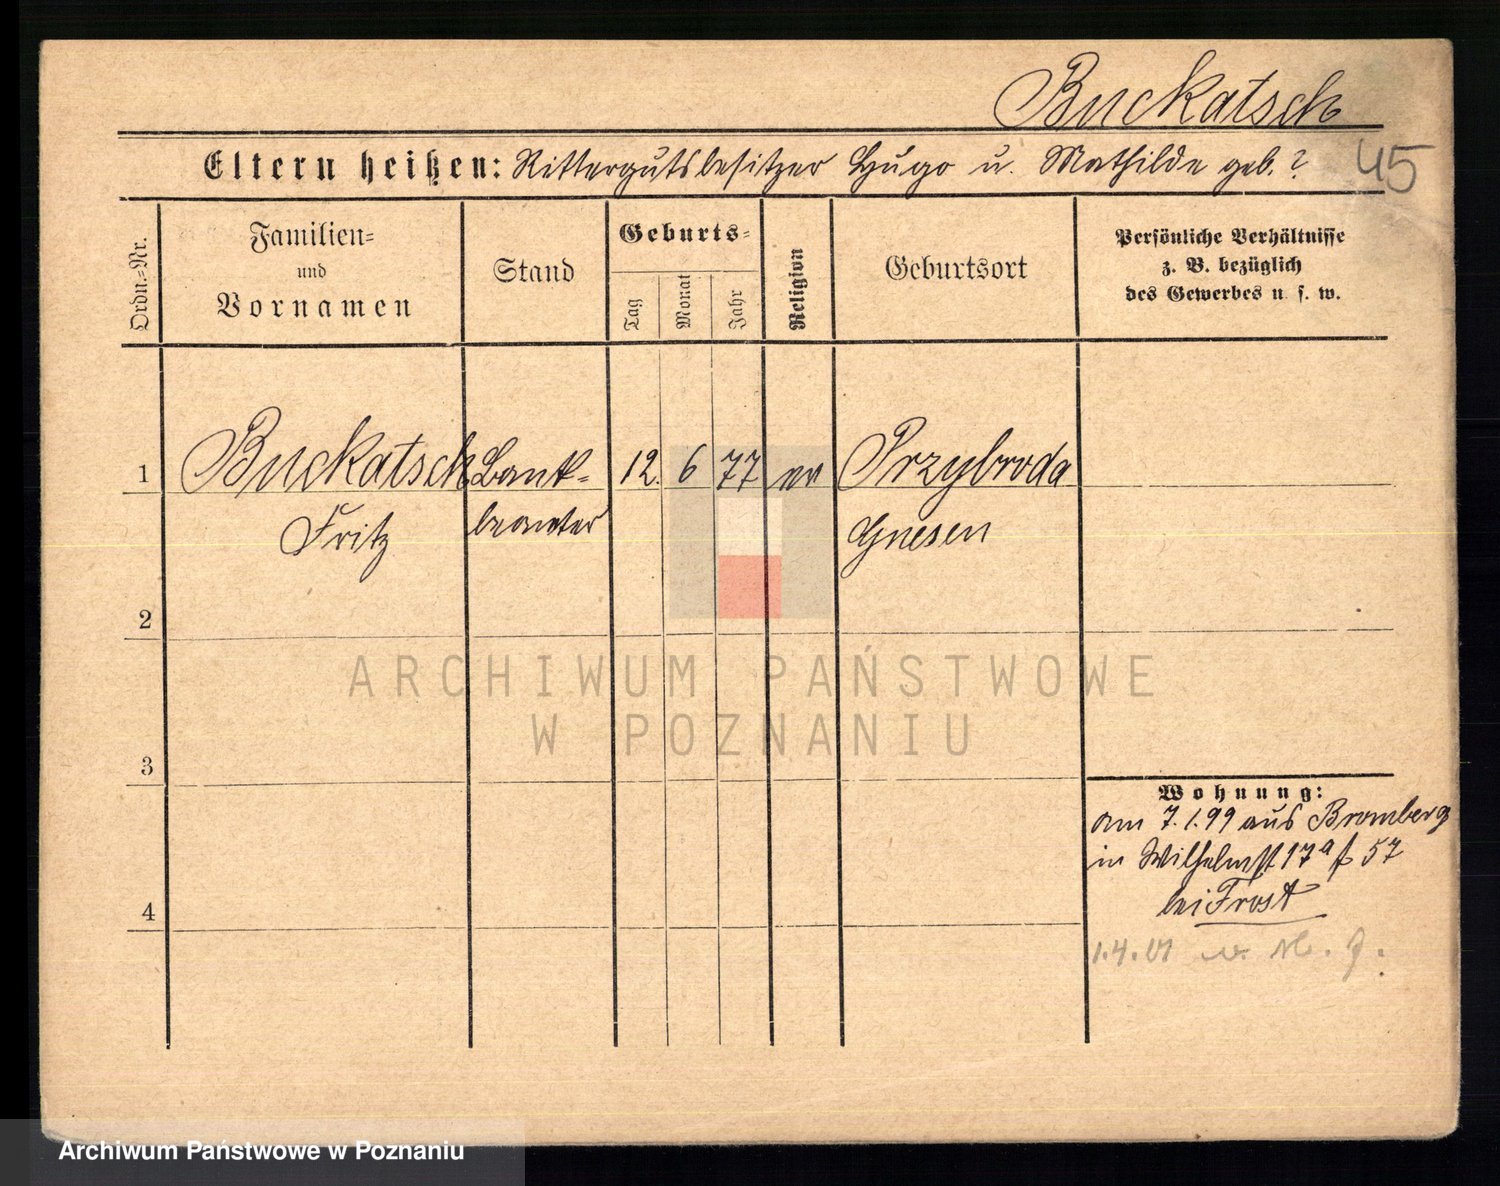 Buckatsch
45
Eltern heißen: Rittergutsbesitzer Hugo u. Mathilde geb. ?
Ordn.-Nr.
Familien-
und
Vornamen
Stand
Geburts-
Tag
Monat
Jahr
Religion
Geburtsort
Persönliche Verhältnisse
z. B. bezüglich
des Gewerbes u. s. w.
1 Buckatsch Bank- 12. 6 77 ev Przybroda
Fritz beamter Gnesen
2
ARCHIWUM PAŃSTWOWE
W POZNANIU
3
Wohnung:
am 7.1.99 aus Bromberg
in Wilhelmst 17a 57
4
bei Frost
1.4.01
Archiwum Państwowe w Poznaniu